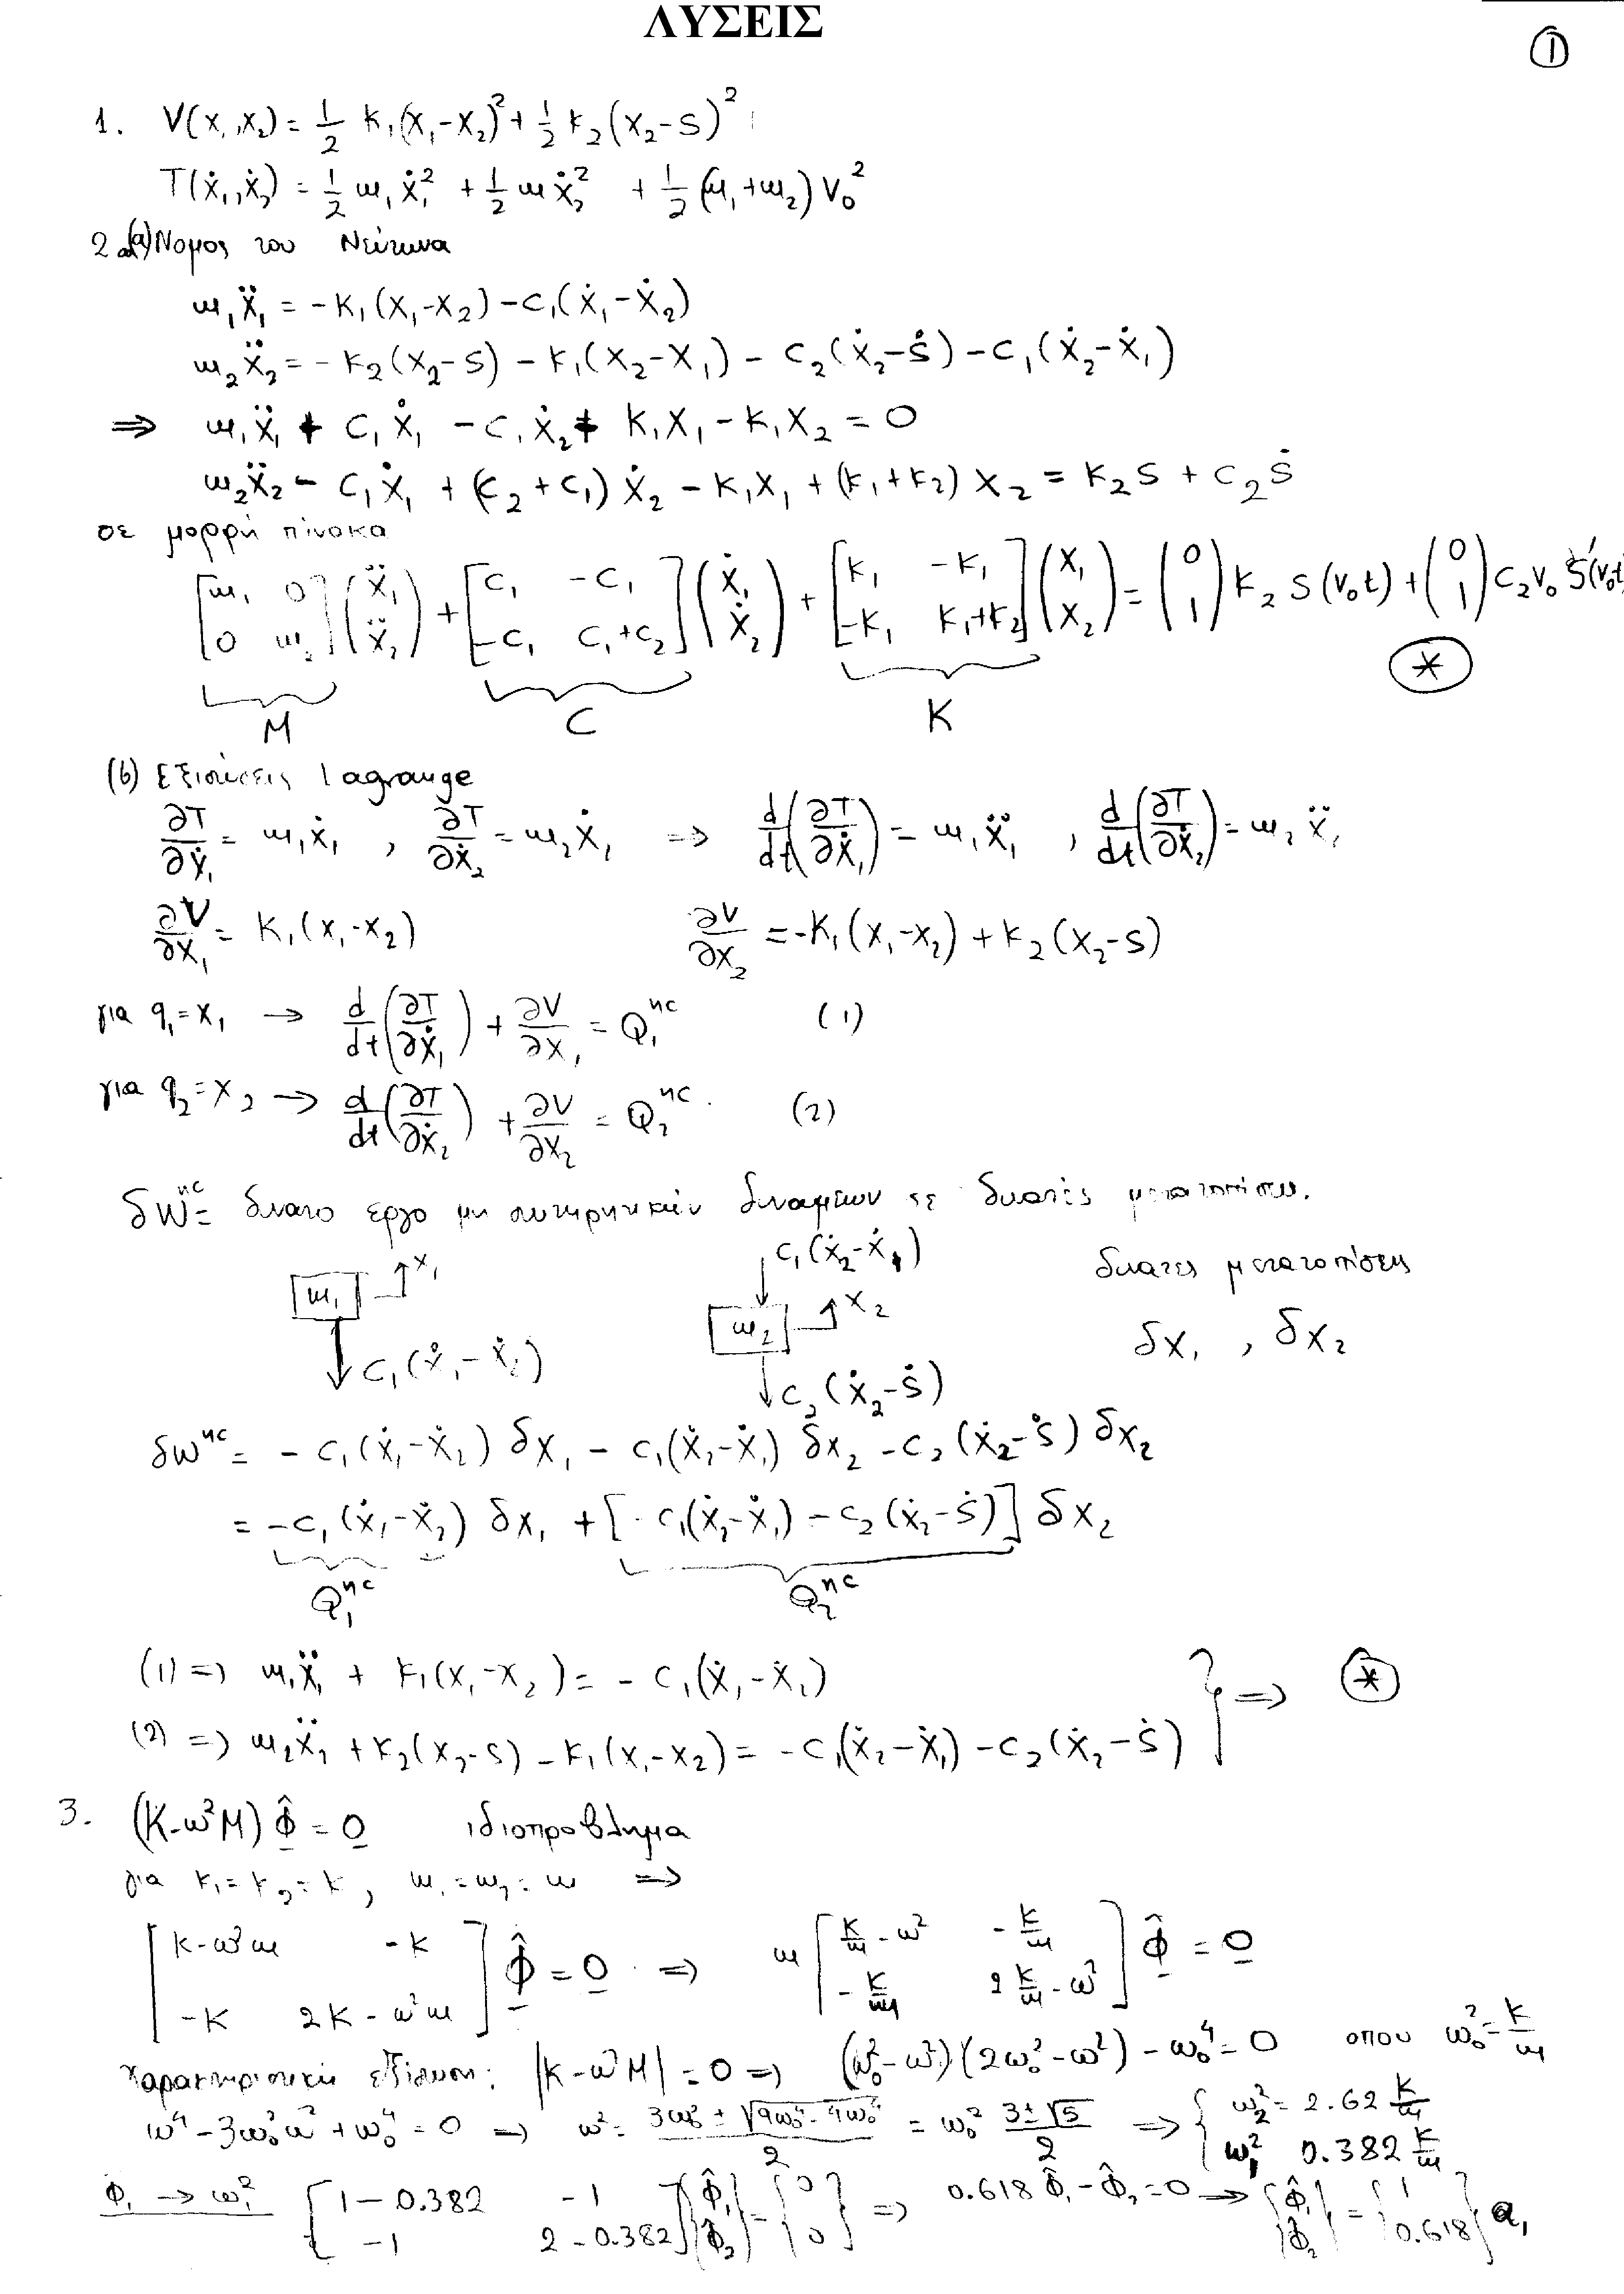 ΛΥΣΕΙΣ
①
1. V(x₁,x₂) = 1/2 k₁(x₁-x₂)² + 1/2 k₂(x₂-s)²
T(ẋ₁,ẋ₂) = 1/2 m₁ẋ₁² + 1/2 mẋ₂² + 1/2 (m₁+m₂)v₀²
2. (a) Νομος του Νεύτωνα
m₁ẍ₁ = -k₁(x₁-x₂) - c₁(ẋ₁-ẋ₂)
m₂ẍ₂ = -k₂(x₂-s) - k₁(x₂-x₁) - c₂(ẋ₂-ṡ) - c₁(ẋ₂-ẋ₁)
⇒ m₁ẍ₁ + c₁ẋ₁ - c₁ẋ₂ + k₁x₁ - k₁x₂ = 0
m₂ẍ₂ - c₁ẋ₁ + (c₂+c₁)ẋ₂ - k₁x₁ + (k₁+k₂)x₂ = k₂s + c₂ṡ
σε μορφή πίνακα
[m₁ 0; 0 m₂](ẍ₁; ẍ₂) + [c₁ -c₁; -c₁ c₁+c₂](ẋ₁; ẋ₂) + [k₁ -k₁; -k₁ k₁+k₂](x₁; x₂) = (0; 1)k₂s(v₀t) + (0; 1)c₂v₀s′(v₀t
M C K (*)
(b) Εξισώσεις Lagrange
∂T/∂ẋ₁ = m₁ẋ₁ , ∂T/∂ẋ₂ = m₂ẋ₂ ⇒ d/dt(∂T/∂ẋ₁) = m₁ẍ₁ , d/dt(∂T/∂ẋ₂) = m₂ẍ₂
∂V/∂x₁ = k₁(x₁-x₂) ∂V/∂x₂ = -k₁(x₁-x₂) + k₂(x₂-s)
για q₁=x₁ → d/dt(∂T/∂ẋ₁) + ∂V/∂x₁ = Q₁ⁿᶜ (1)
για q₂=x₂ → d/dt(∂T/∂ẋ₂) + ∂V/∂x₂ = Q₂ⁿᶜ. (2)
δWⁿᶜ = δυνατο εργο μη συντηρητικών δυναμεων σε δυνατές μετατοπίσεις.
m₁ x₁ c₁(ẋ₁-ẋ₂)
c₁(ẋ₂-ẋ₁) m₂ x₂ c₂(ẋ₂-ṡ)
δυνατες μετατοπίσεις
δx₁ , δx₂
δWⁿᶜ = -c₁(ẋ₁-ẋ₂)δx₁ - c₁(ẋ₂-ẋ₁)δx₂ - c₂(ẋ₂-ṡ)δx₂
= -c₁(ẋ₁-ẋ₂)δx₁ + [-c₁(ẋ₂-ẋ₁) - c₂(ẋ₂-ṡ)]δx₂
Q₁ⁿᶜ Q₂ⁿᶜ
(1) ⇒ m₁ẍ₁ + k₁(x₁-x₂) = -c₁(ẋ₁-ẋ₂)
(2) ⇒ m₂ẍ₂ + k₂(x₂-s) - k₁(x₁-x₂) = -c₁(ẋ₂-ẋ₁) - c₂(ẋ₂-ṡ) } ⇒ (*)
3. (K-ω²M)Φ̂ = 0 ιδιοπροβλημα
για k₁=k₂=k, m₁=m₂=m ⇒
[k-ω²m -k; -k 2k-ω²m]Φ̂ = 0 ⇒ m[k/m-ω² -k/m; -k/m 2k/m-ω²]Φ̂ = 0
Χαρακτηριστική εξίσωση: |K-ω²M| = 0 ⇒ (ω₀²-ω²)(2ω₀²-ω²) - ω₀⁴ = 0 οπου ω₀² = k/m
ω⁴-3ω₀²ω²+ω₀⁴ = 0 ⇒ ω² = (3ω₀² ± √(9ω₀⁴-4ω₀⁴))/2 = ω₀² (3±√5)/2 ⇒ { ω₂² = 2.62 k/m
ω₁² 0.382 k/m
Φ₁ → ω₁² [1-0.382 -1; -1 2-0.382]{Φ̂₁; Φ̂₂} = {0; 0} ⇒ 0.618Φ̂₁-Φ̂₂=0 ⇒ {Φ̂₁; Φ̂₂} = {1; 0.618}a₁